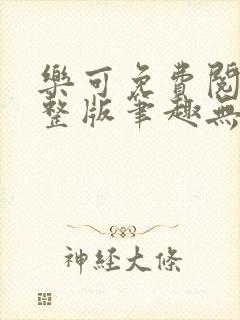 樂可免費閱
整版筆趣無
神經大條